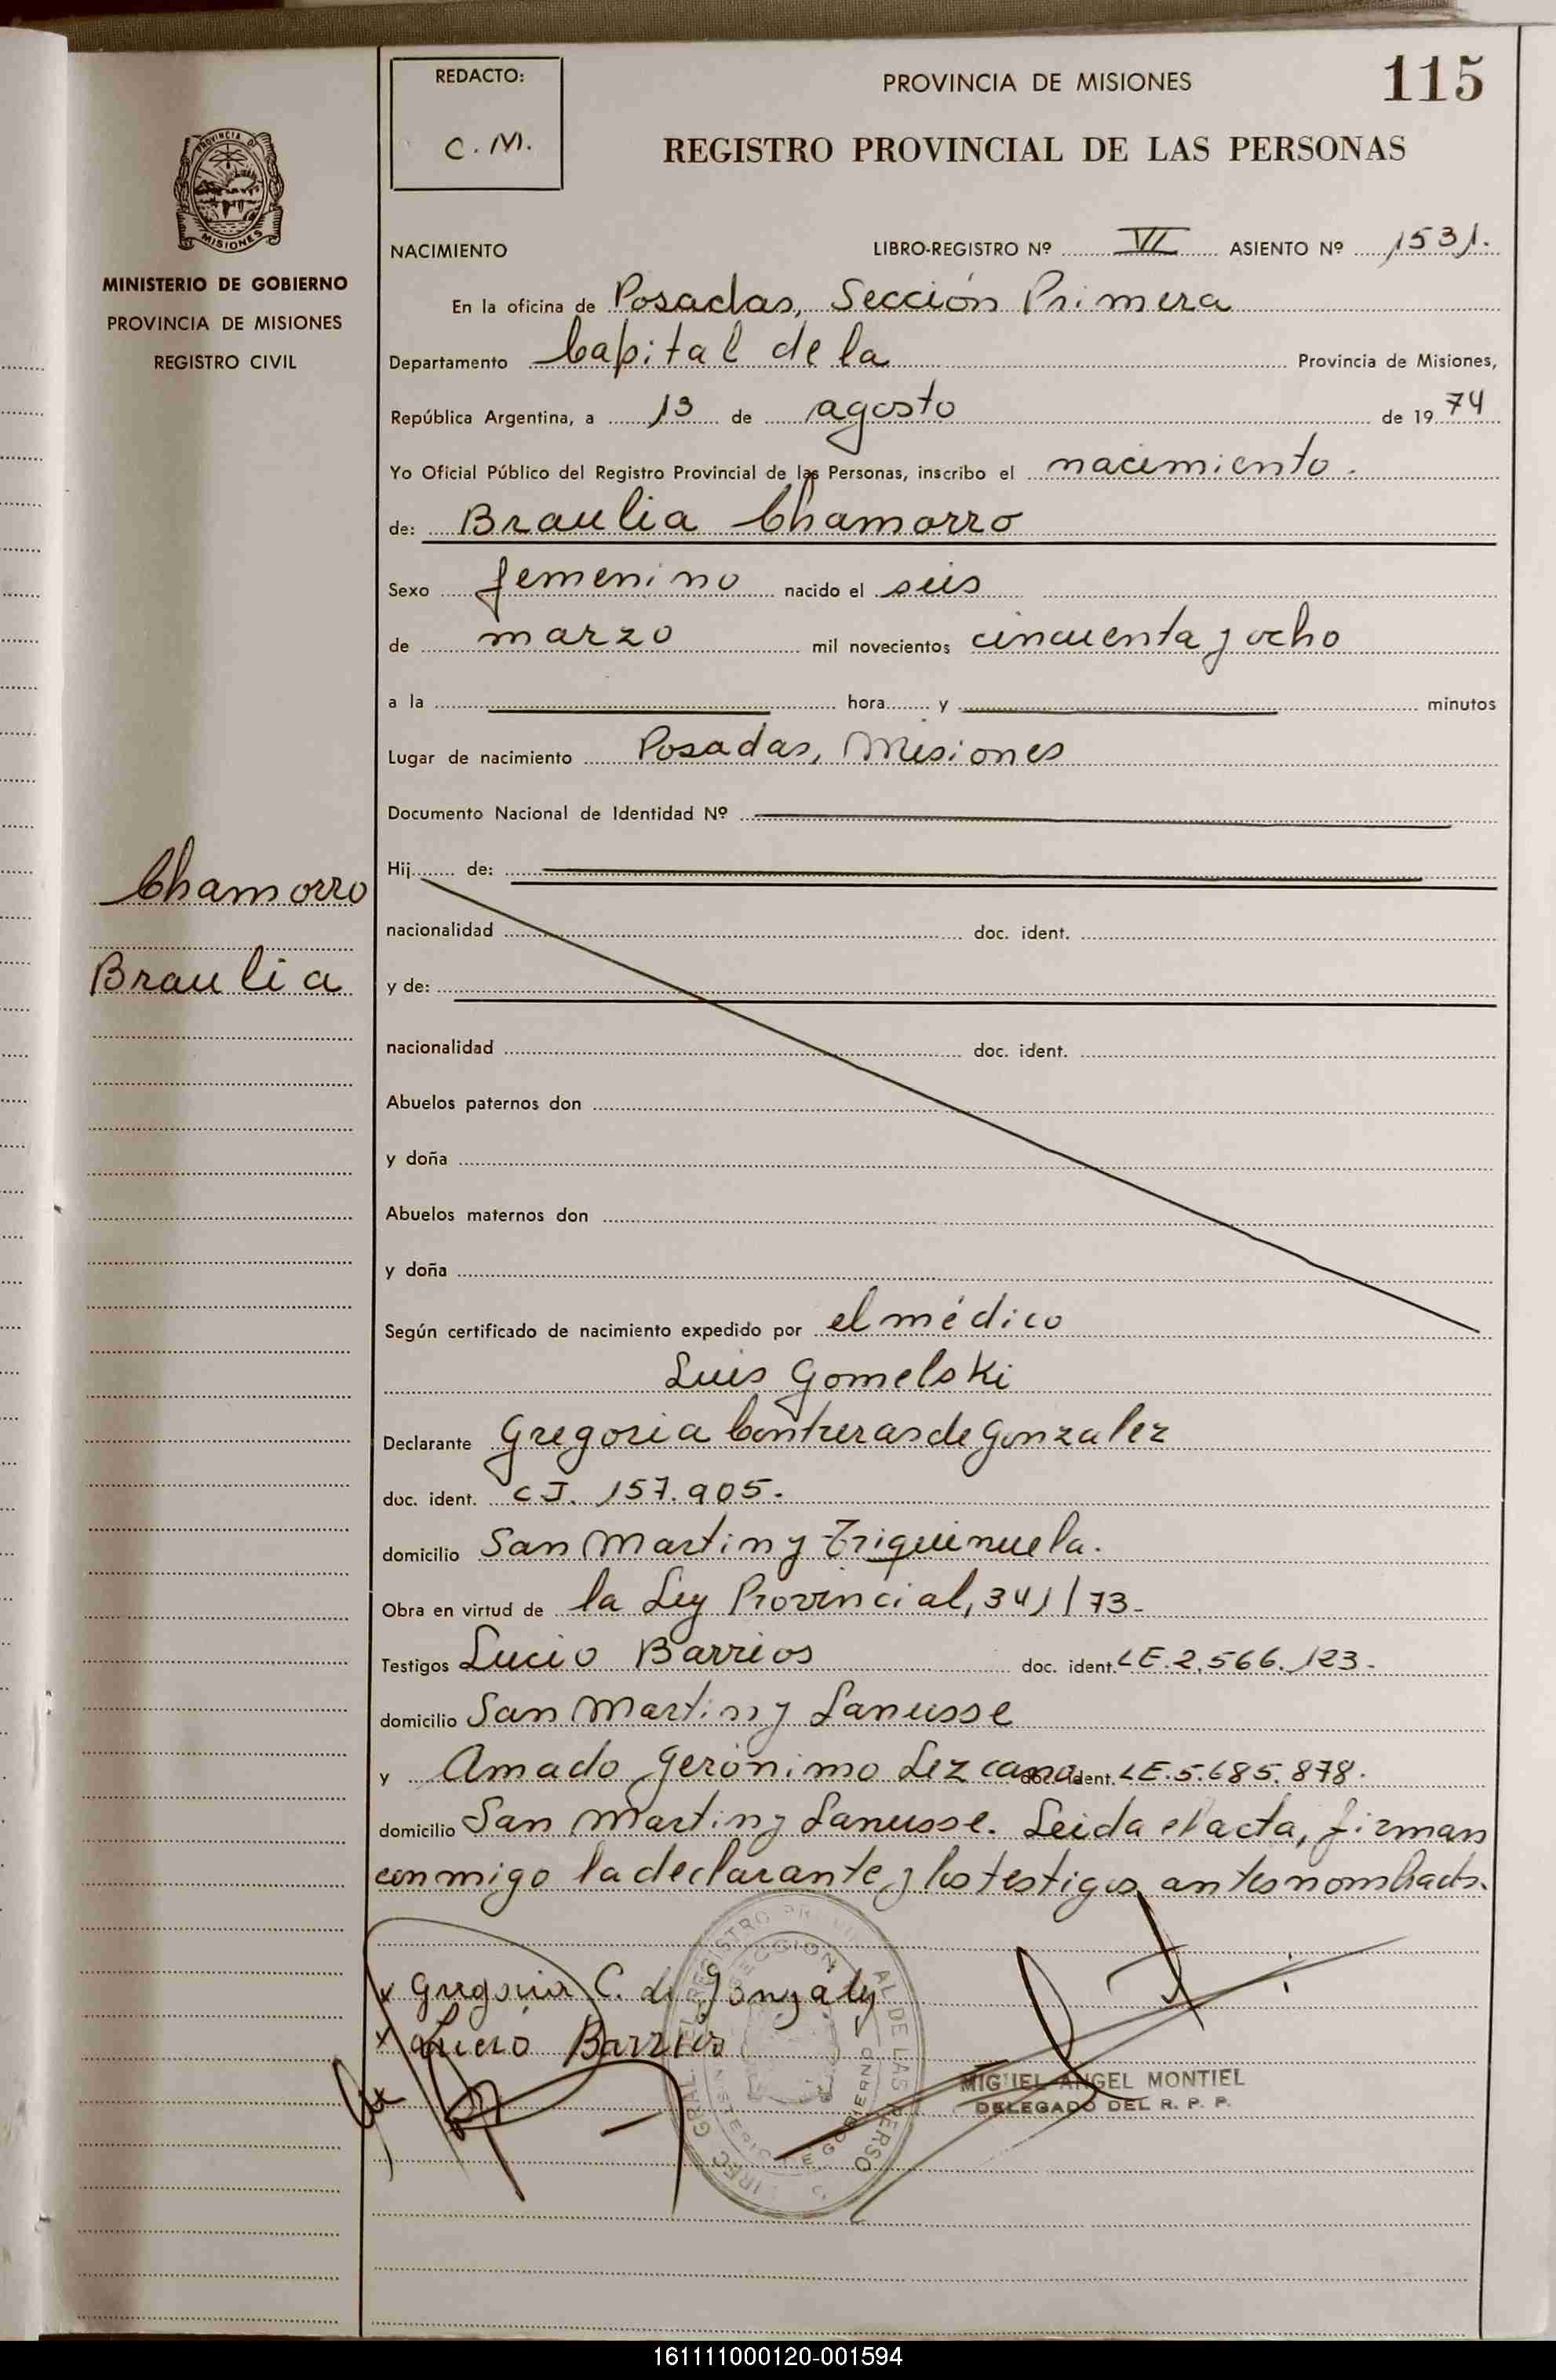 REDACTO:
C. M.
PROVINCIA DE MISIONES
115
REGISTRO PROVINCIAL DE LAS PERSONAS
PROVINCIA DE
MISIONES
MINISTERIO DE GOBIERNO
PROVINCIA DE MISIONES
REGISTRO CIVIL
NACIMIENTO LIBRO-REGISTRO Nº VII ASIENTO Nº 1531.
En la oficina de Posadas, Sección Primera
Departamento Capital de la Provincia de Misiones,
República Argentina, a 13 de agosto de 1974
Yo Oficial Público del Registro Provincial de las Personas, inscribo el nacimiento.
de: Braulia Chamorro
Sexo femenino nacido el seis
de marzo mil novecientos cincuenta y ocho
a la hora y minutos
Lugar de nacimiento Posadas, Misiones
Documento Nacional de Identidad Nº
Hij de:
Chamorro
nacionalidad doc. ident.
Braulia
y de:
nacionalidad doc. ident.
Abuelos paternos don
y doña
Abuelos maternos don
y doña
Según certificado de nacimiento expedido por el médico
Luis Gomelski
Declarante Gregoria Contreras de Gonzalez
doc. ident. C.I. 157.905.
domicilio San Martin y Triquinuela.
Obra en virtud de la Ley Provincial, 341/73-
Testigos Lucio Barrios doc. ident. LE. 2.566.123-
domicilio San Martin y Lanusse
y Amado Gerónimo Lezcano doc. ident. LE. 5.685.878.
domicilio San Martin y Lanusse. Leida el acta, firman
conmigo la declarante y los testigos antes nombrados.
x Gregoria C. de Gonzály
x Lucio Barrios
MIGUEL ANGEL MONTIEL
DELEGADO DEL R. P. P.
161111000120-001594